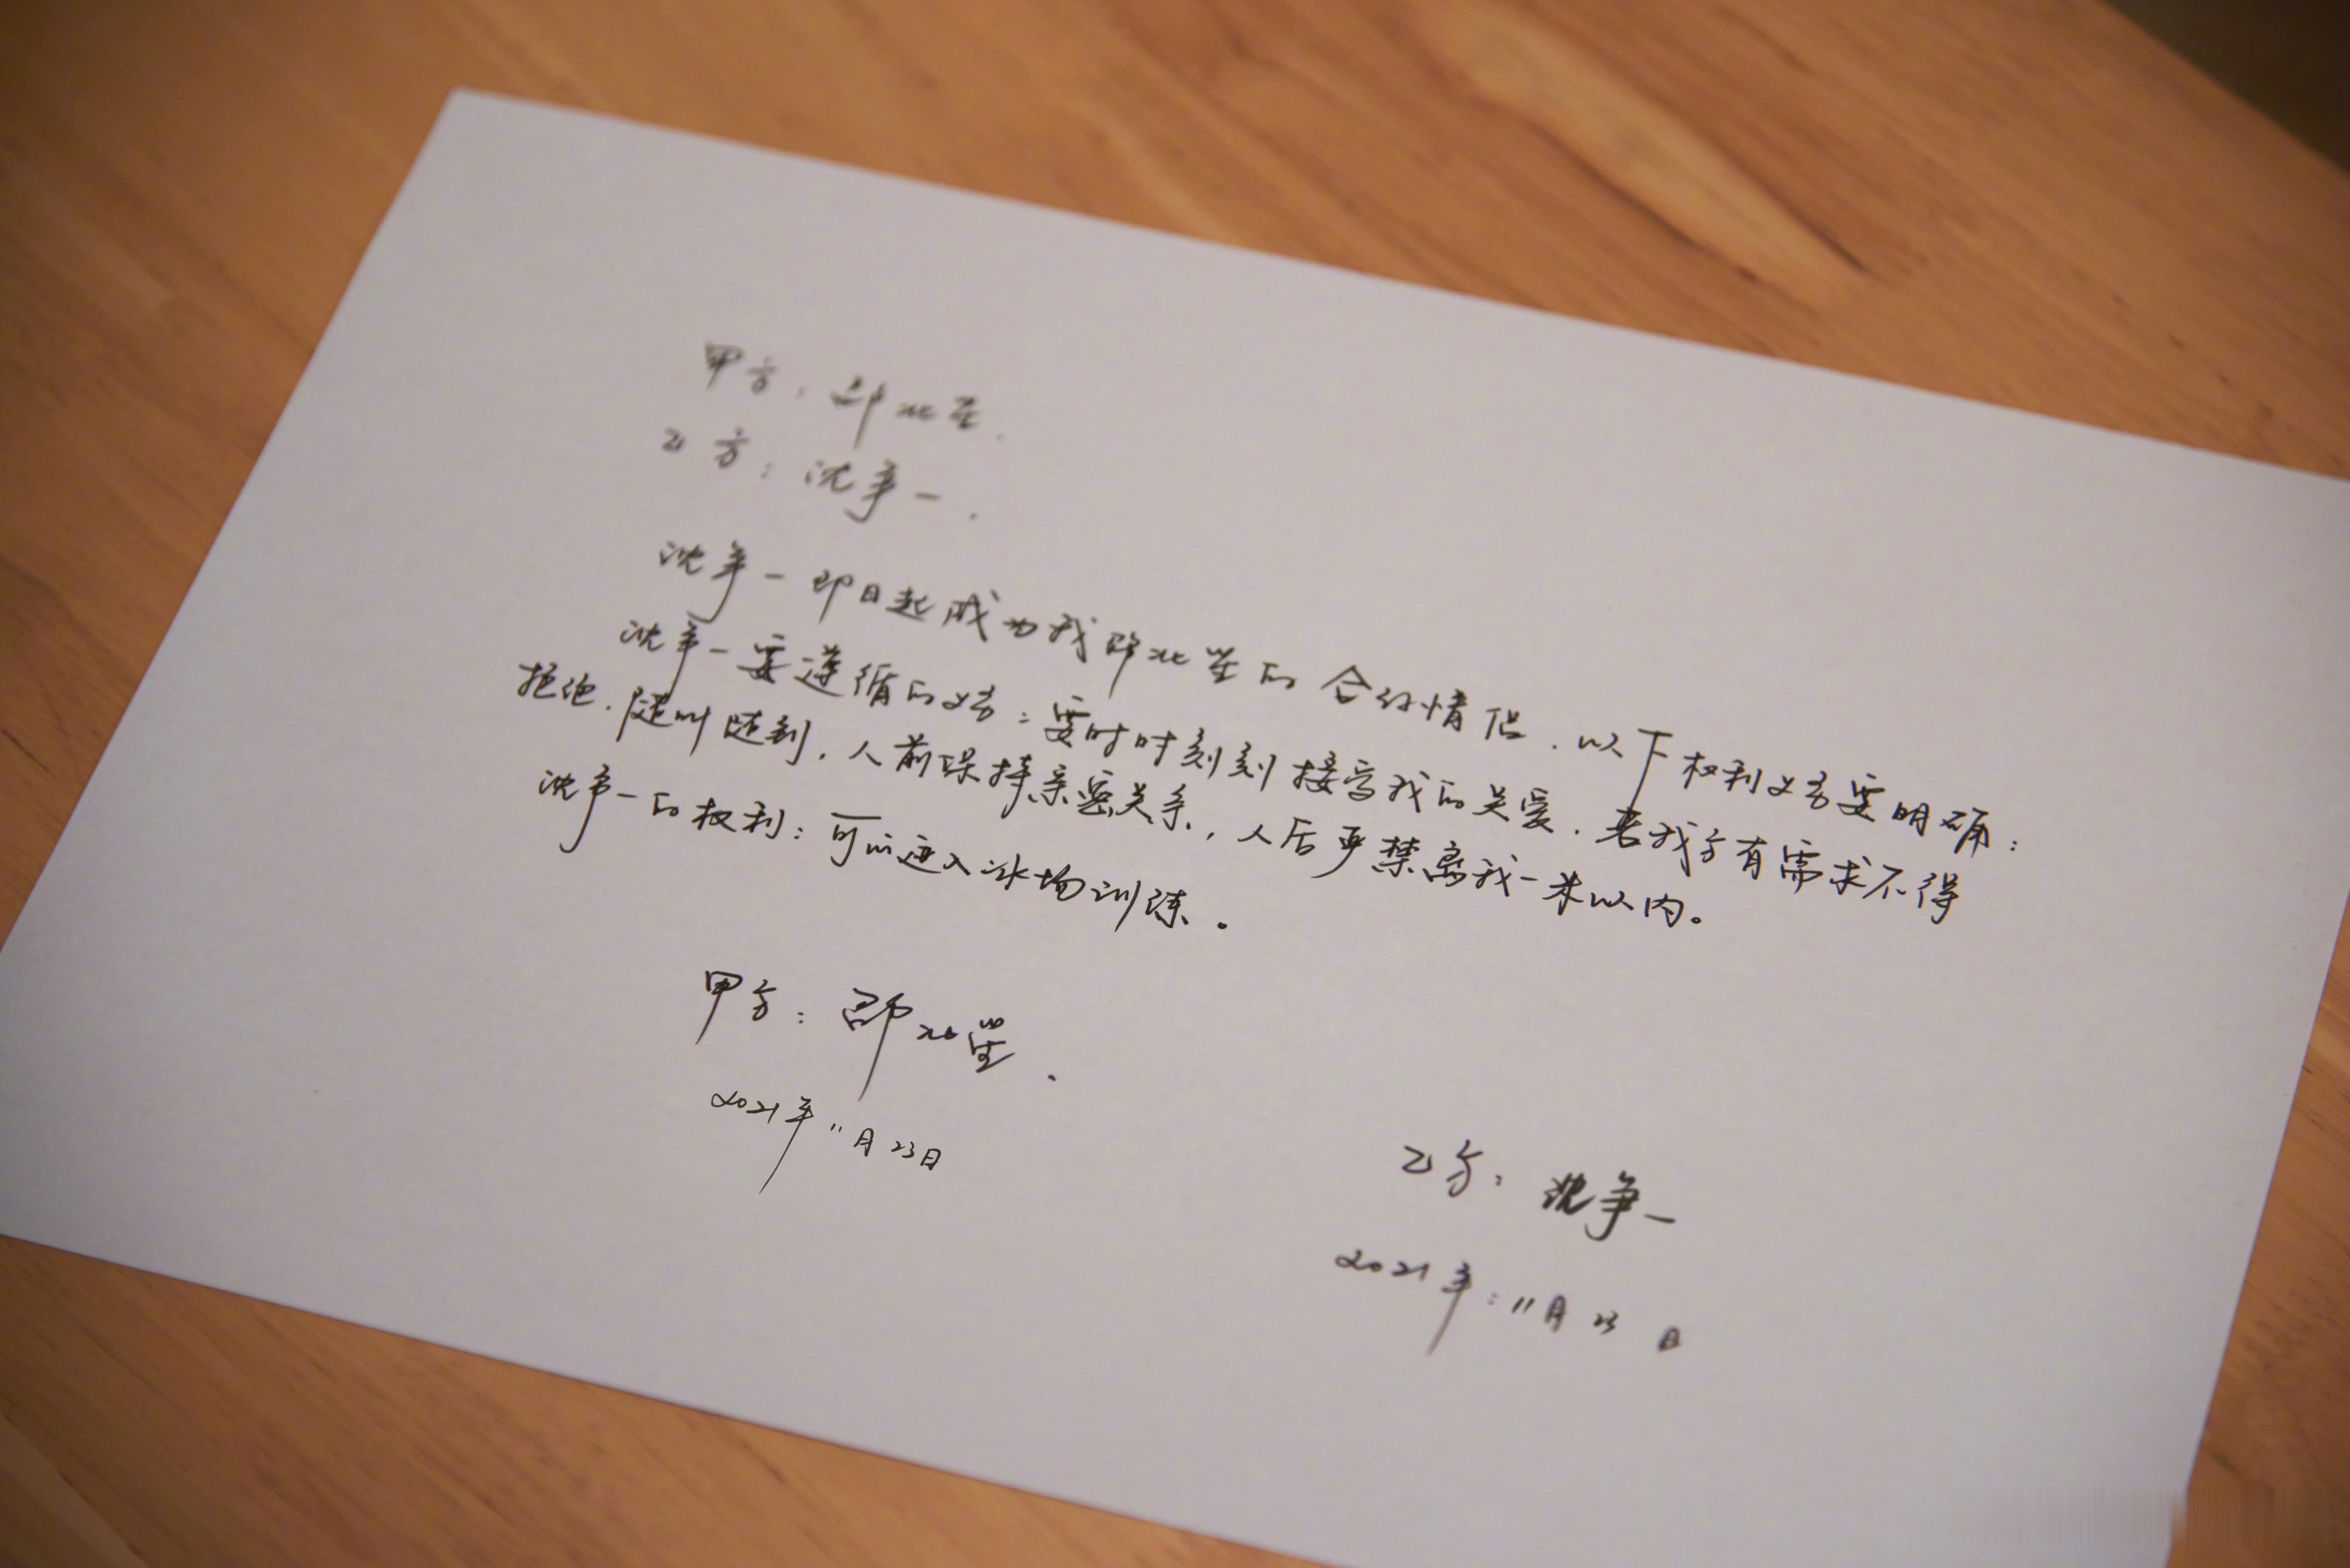 甲方：邵北笙.
乙方：沈争一.
沈争一即日起成为我邵北笙的合约情侣.以下权利义务要明确：
沈争一要遵循的义务：要时时刻刻接受我的关爱.若我方有需求不得
拒绝.随叫随到，人前保持亲密关系，人后严禁离我一米以内。
沈争一的权利：可以进入冰场训练。
甲方：邵北笙.
2021年11月23日
乙方：沈争一
2021年：11月23日